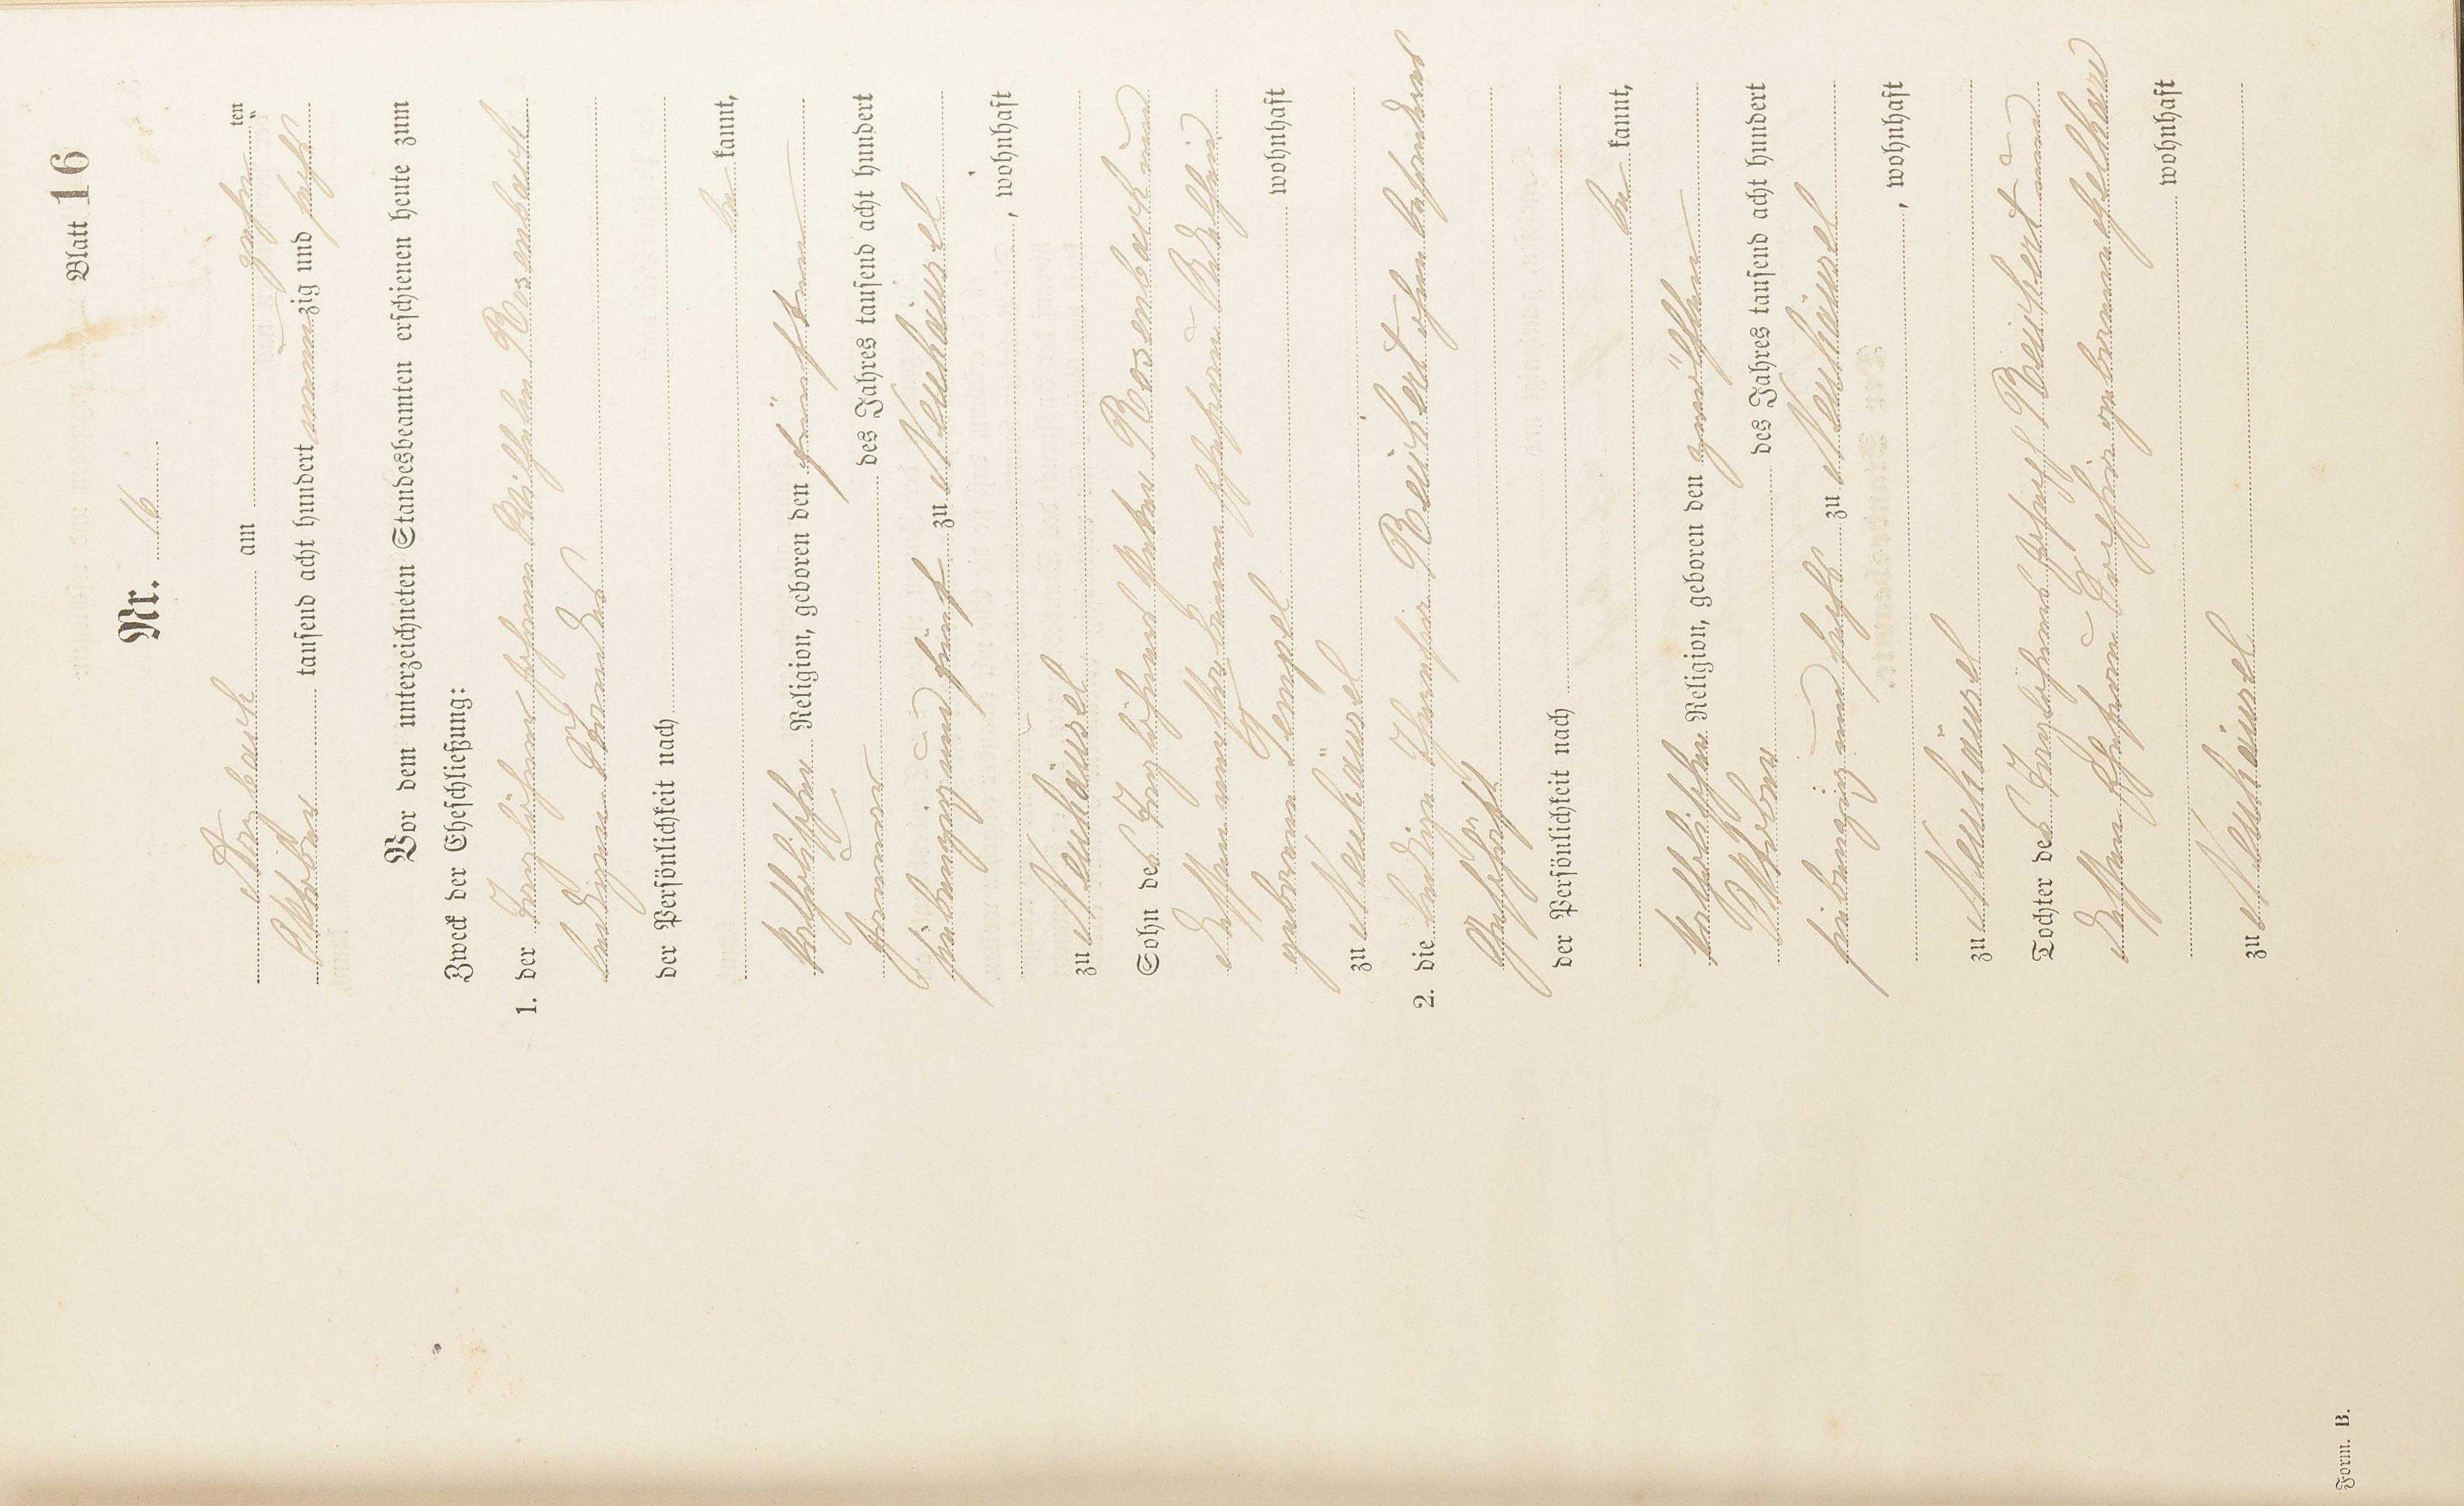 Blatt 16
Nr. 16
Arzbach am zehn ten
Oktober tausend acht hundert neunzig und sechs
Vor dem unterzeichneten Standesbeamten erschienen heute zum
Zweck der Eheschließung:
1. der Taglöhner Johann Wilhelm Rosenbach
ledigen Standes
der Persönlichkeit nach
be kannt,
katholischer Religion, geboren den fünften
Januar des Jahres tausend acht hundert
siebenzig und fünf zu Neuhäusel
, wohnhaft
zu Neuhäusel
Sohn des Taglöhners Peter Rosenbach und
dessen verstorbenen Ehefrau
geborenen Gempel wohnhaft
zu Neuhäusel
2. die ledige Theresia Reichert ohne besonderes
Geschäft
der Persönlichkeit nach
be kannt,
katholischer Religion, geboren den zwölften
Oktober des Jahres tausend acht hundert
siebenzig und sechs zu Neuhäusel
, wohnhaft
zu Neuhäusel
Tochter des Taglöhners Josef Reichert und
dessen Ehefrau geborenen
wohnhaft
zu Neuhäusel
Form. B.